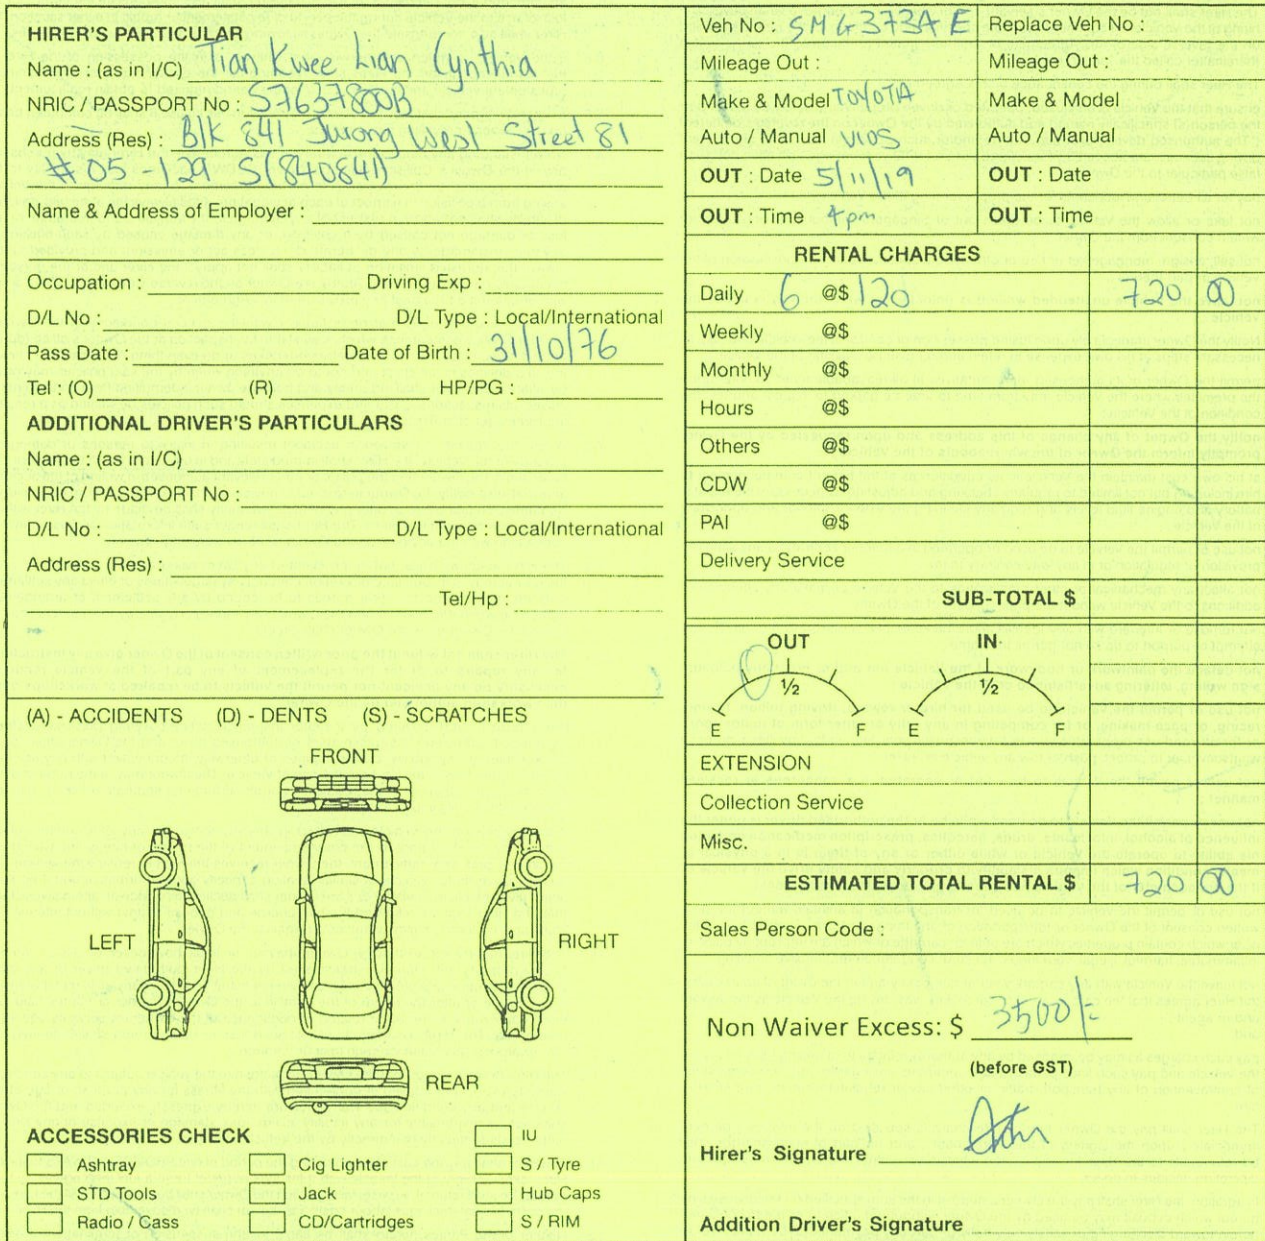 HIRER'S PARTICULAR
Name : (as in I/C) Tian Kwee Lian Cynthia
NRIC / PASSPORT No : S7637800B
Address (Res) : Blk 841 Jurong West Street 81
#05-129 S(840841)
Name & Address of Employer :
Occupation : Driving Exp :
D/L No : D/L Type : Local/International
Pass Date : Date of Birth : 31/10/76
Tel : (O) (R) HP/PG :
ADDITIONAL DRIVER'S PARTICULARS
Name : (as in I/C)
NRIC / PASSPORT No :
D/L No : D/L Type : Local/International
Address (Res) :
Tel/Hp :
(A) - ACCIDENTS (D) - DENTS (S) - SCRATCHES
FRONT
LEFT
RIGHT
REAR
ACCESSORIES CHECK
IU
Ashtray Cig Lighter S / Tyre
STD Tools Jack Hub Caps
Radio / Cass CD/Cartridges S / RIM
Veh No : SMG3734E Replace Veh No :
Mileage Out : Mileage Out :
Make & Model TOYOTA Make & Model
Auto / Manual VIOS Auto / Manual
OUT : Date 5/11/19 OUT : Date
OUT : Time 4pm OUT : Time
RENTAL CHARGES
Daily 6 @$ 120 720 00
Weekly @$
Monthly @$
Hours @$
Others @$
CDW @$
PAI @$
Delivery Service
SUB-TOTAL $
OUT IN
1/2 1/2
E F E F
EXTENSION
Collection Service
Misc.
ESTIMATED TOTAL RENTAL $ 720 00
Sales Person Code :
Non Waiver Excess: $ 3500/-
(before GST)
Hirer's Signature
Addition Driver's Signature